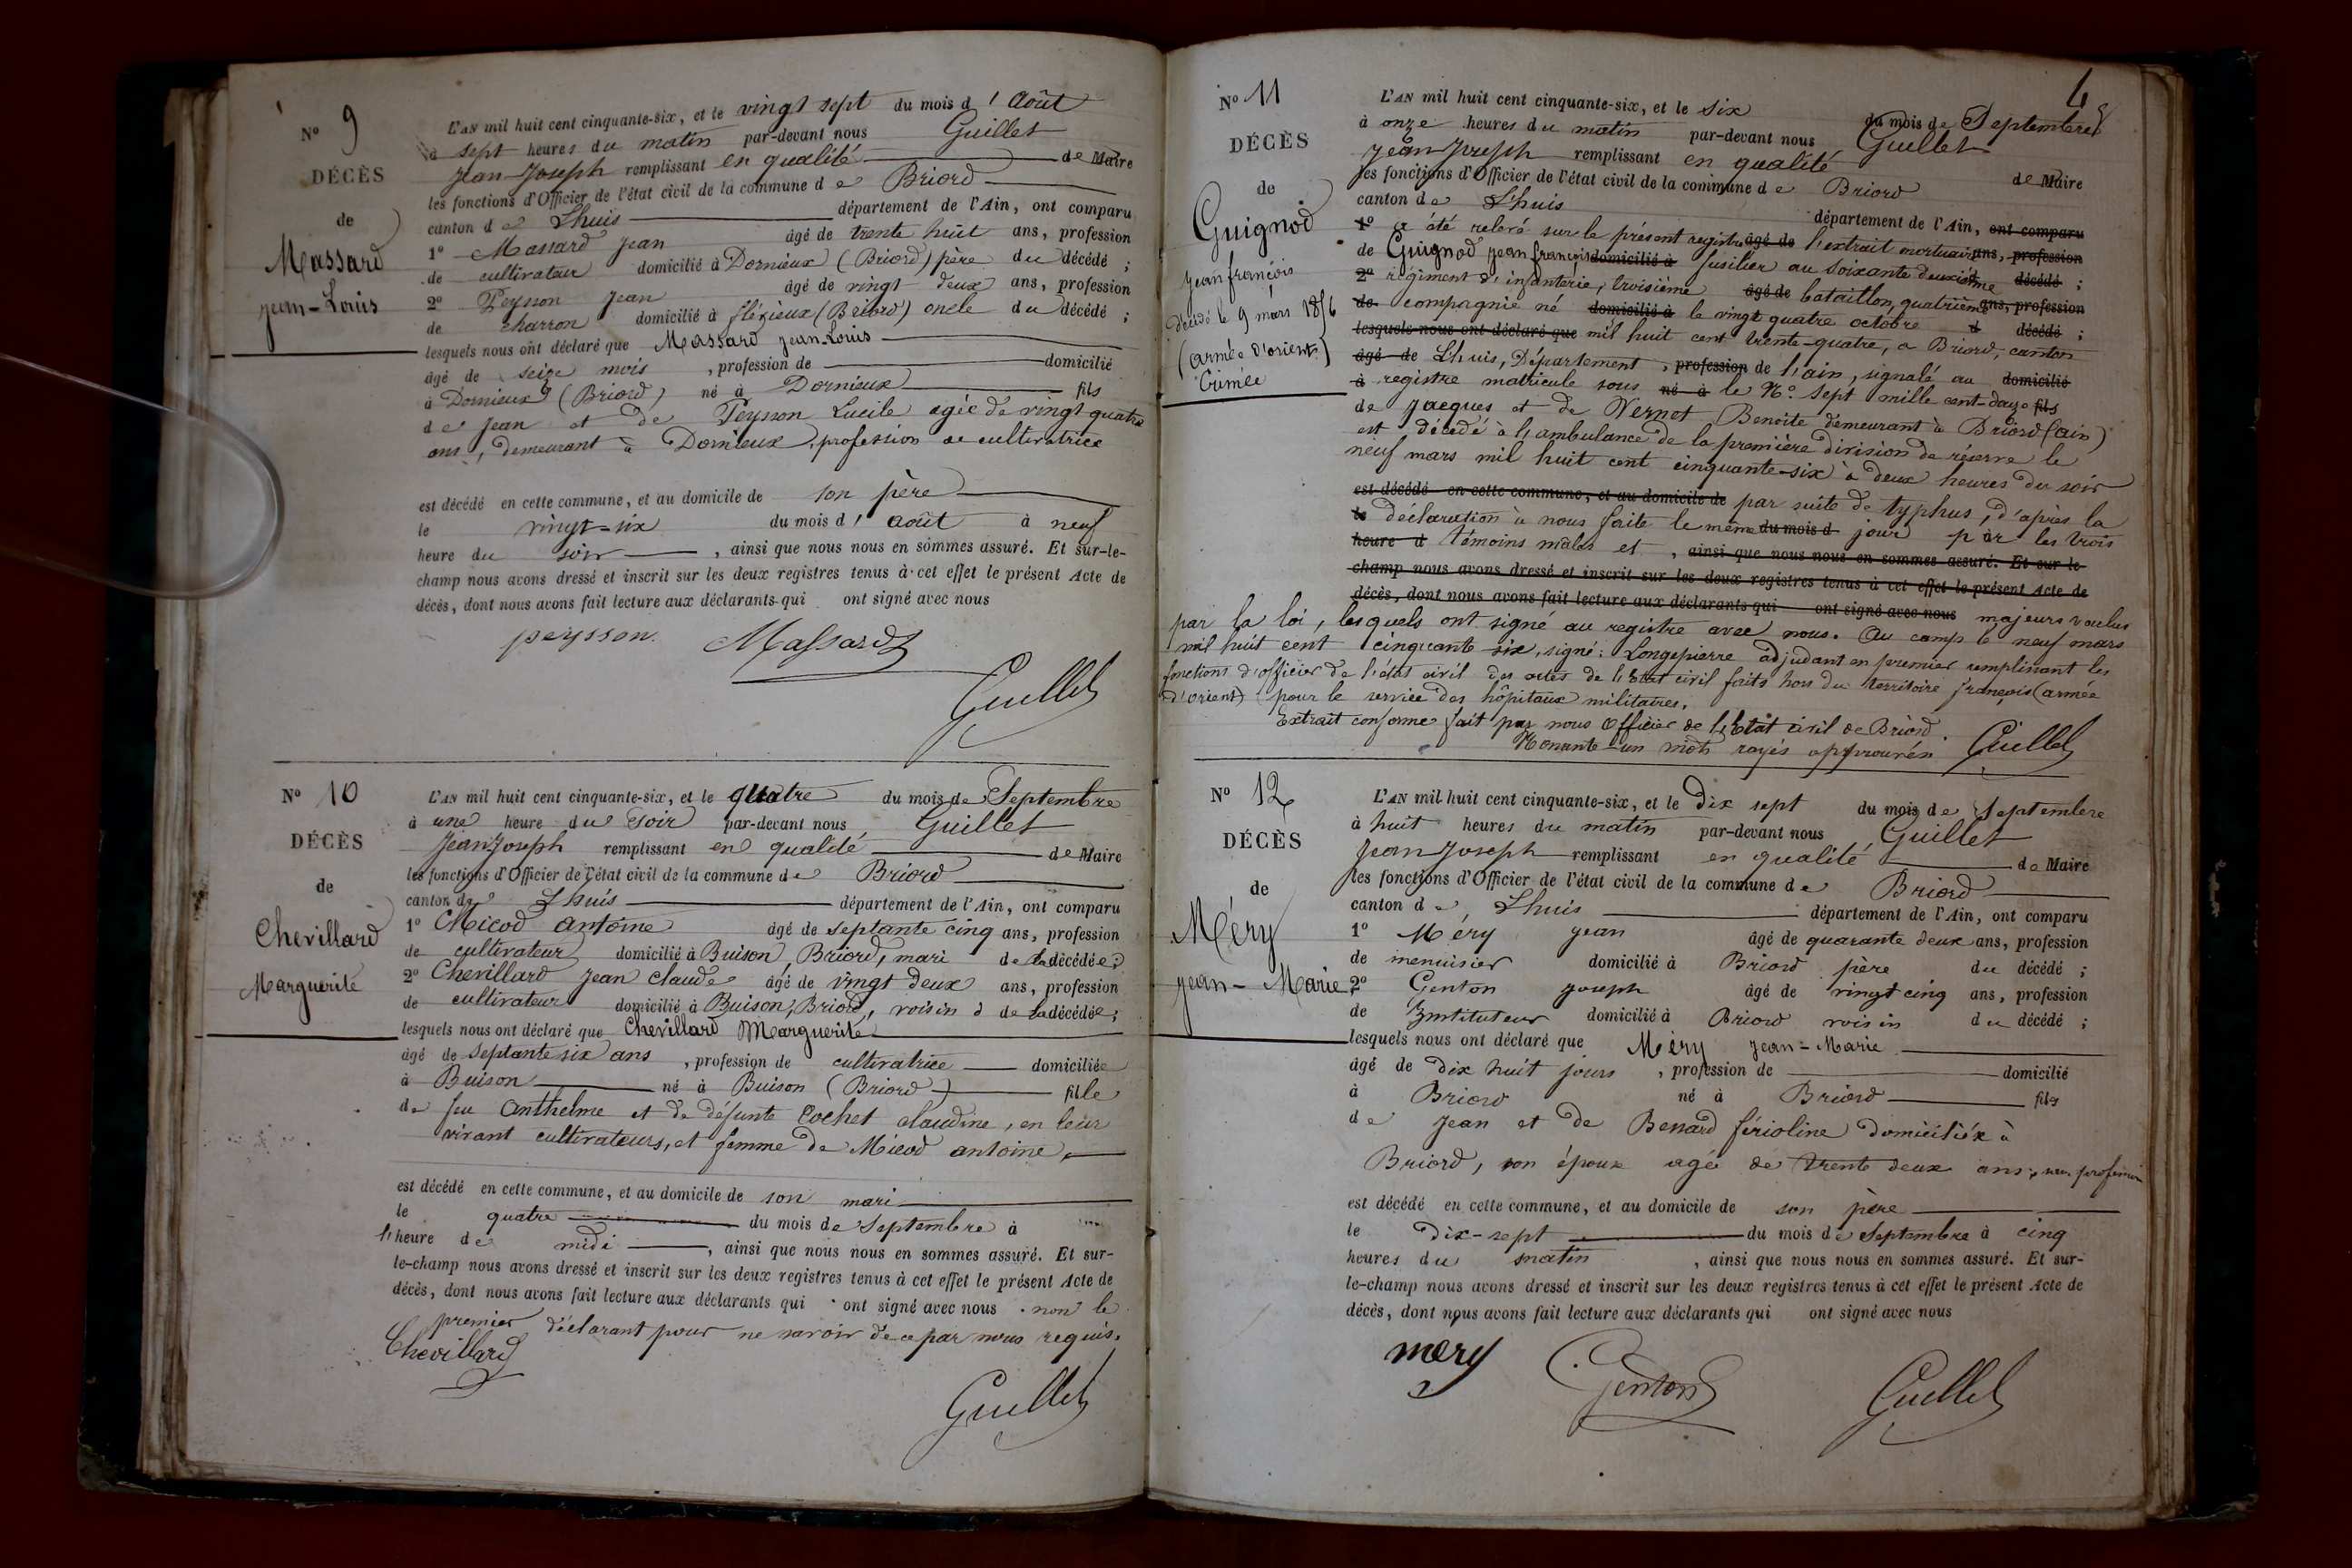 No 9
DÉCÈS
de
Massard
Jean-Louis
L'AN mil huit cent cinquante-six, et le vingt sept du mois d'Août
à sept heures du matin par-devant nous Guillet
Jean-Joseph remplissant en qualité de Maire
les fonctions d'Officier de l'état civil de la commune de Briord
canton de Lhuis département de l'Ain, ont comparu
1o Massard Jean âgé de trente huit ans, profession
de cultivateur domicilié à Dornieux (Briord) père du décédé ;
2o Peysson Jean âgé de vingt deux ans, profession
de charron domicilié à flérieux (Briord) oncle du décédé ;
lesquels nous ont déclaré que Massard Jean-Louis
âgé de seize mois , profession de domicilié
à Dornieux (Briord) né à Dornieux fils
de Jean et de Peysson Lucile agée de vingt quatre
ans, demeurant à Dornieux, profession de cultivatrice
est décédé en cette commune, et au domicile de son père
le vingt-six du mois d'août à neuf
heure du soir , ainsi que nous nous en sommes assuré. Et sur-le-
champ nous avons dressé et inscrit sur les deux registres tenus à cet effet le présent Acte de
décès, dont nous avons fait lecture aux déclarants qui ont signé avec nous
peysson. Massard
Guillet
No 10
DÉCÈS
de
Chevillard
Marguerite
L'AN mil huit cent cinquante-six, et le quatre du mois de Septembre
à une heure du soir par-devant nous Guillet
Jean Joseph remplissant en qualité de Maire
les fonctions d'Officier de l'état civil de la commune de Briord
canton de Lhuis département de l'Ain, ont comparu
1o Micod antoine âgé de septante cinq ans, profession
de cultivateur domicilié à Buison, Briord, mari de la décédée ;
2o Chevillard Jean claude âgé de vingt deux ans, profession
de cultivateur domicilié à Buison, Briord, voisin d de la décédée ;
lesquels nous ont déclaré que Chevillard Marguerite
âgé de septante six ans , profession de cultivatrice domiciliée
à Buison né à Buison (Briord) fille
de feu Anthelme et de défunte Cochet claudine, en leur
vivant cultivateurs, et femme de Micod antoine,
est décédé en cette commune, et au domicile de son mari
le quatre du mois de Septembre à
l'heure de midi , ainsi que nous nous en sommes assuré. Et sur-
le-champ nous avons dressé et inscrit sur les deux registres tenus à cet effet le présent Acte de
décès, dont nous avons fait lecture aux déclarants qui ont signé avec nous non le
premier déclarant pour ne savoir de ce par nous requis.
Chevillard
Guillet
4
No 11
DÉCÈS
de
Guignod
Jean françois
décédé le 9 mars 1856
(armée d'orient)
Crimée
L'AN mil huit cent cinquante-six, et le six du mois de Septembre
à onze heures du matin par-devant nous Guillet
Jean Joseph remplissant en qualité de Maire
les fonctions d'Officier de l'état civil de la commune de Briord
canton de Lhuis département de l'Ain, ont comparu
1o a été relevé sur le présent registre âgé de l'extrait mortuaire ans, profession
de Guignod Jean françois domicilié à fusilier au soixante deuxième d décédé ;
2o régiment d'infanterie, troisième âgé de bataillon, quatrième ans, profession
de compagnie né domicilié à le vingt quatre octobre d décédé ;
lesquels nous ont déclaré que mil huit cent trente-quatre, a Briord, canton
âgé de Lhuis, Département , profession de l'ain, signalé au domicilié
à registre matricule sous né à le No. sept mille cent-douze fils
de Jacques et de Vernet Benoite demeurant à Briord (ain)
est décédé à l'ambulance de la première division de réserve le
neuf mars mil huit cent cinquante-six à deux heures du soir
est décédé en cette commune, et au domicile de par suite de typhus, d'après la
le déclaration à nous faite le même du mois d jour par les trois
heure d témoins males et , ainsi que nous nous en sommes assuré. Et sur-le-
champ nous avons dressé et inscrit sur les deux registres tenus à cet effet le présent Acte de
décès, dont nous avons fait lecture aux déclarants qui ont signé avec nous majeurs voulus
par la loi, lesquels ont signé au registre avec nous. Au camp le neuf mars
mil huit cent cinquante-six, signé : Longepierre adjudant en premier remplissant les
fonctions d'officier de l'état civil des actes de l'Etat civil faits hors du territoire français (armée
d'orient) pour le service des hôpitaux militaires.
Extrait conforme fait par nous Officier de l'Etat civil de Briord.
Nonante-un mots rayés approuvés Guillet
No 12
DÉCÈS
de
Méry
Jean-Marie
L'AN mil huit cent cinquante-six, et le Dix sept du mois de Septembre
à huit heures du matin par-devant nous Guillet
Jean Joseph remplissant en qualité de Maire
les fonctions d'Officier de l'état civil de la commune de Briord
canton de Lhuis département de l'Ain, ont comparu
1o Méry Jean âgé de quarante deux ans, profession
de menuisier domicilié à Briord père du décédé ;
2o Genton Joseph âgé de vingt cinq ans, profession
de Instituteur domicilié à Briord voisin du décédé ;
lesquels nous ont déclaré que Méry Jean-Marie
âgé de dix huit jours , profession de domicilié
à Briord né à Briord fils
de Jean et de Benard férioline domiciliée à
Briord, son épouse agée de trente deux ans, sans profession
est décédé en cette commune, et au domicile de son père
le Dix-sept du mois de Septembre à cinq
heures du matin , ainsi que nous nous en sommes assuré. Et sur-
le-champ nous avons dressé et inscrit sur les deux registres tenus à cet effet le présent Acte de
décès, dont nous avons fait lecture aux déclarants qui ont signé avec nous
mery Genton Guillet